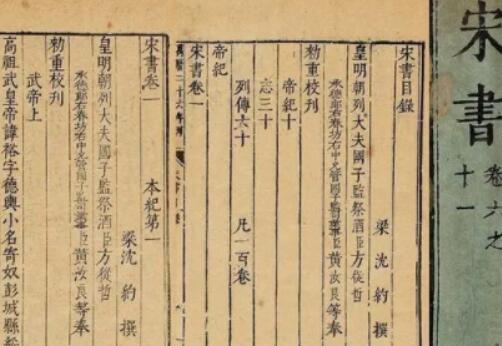 宋書
卷六之
十一
宋書目錄
梁沈約撰
皇明朝列大夫國子監祭酒臣方從哲
承德郎右春坊右中允管國子監司業事臣黃汝良等奉
勑重校刊
帝紀十
志三十
列傳六十 凡一百卷
帝紀
宋書卷一
萬曆二十六年刊
宋書卷一 本紀第一
梁沈約撰
皇明朝列大夫國子監祭酒臣方從哲
承德郎右春坊右中允管國子監司業事臣黃汝良等奉
勑重校刊
武帝上
高祖武皇帝諱裕字德輿小名寄奴彭城縣